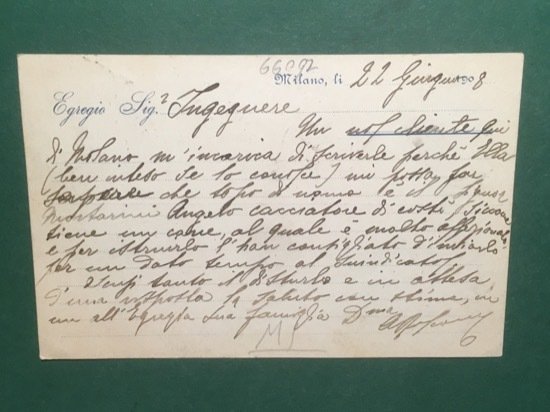 66092
Milano, li 22 Giugno 908
Egregio Sig.r Ingegnere
Un nos cliente qui
di Milano m'incarica di scriverle perchè Ella
(ben inteso se lo conosce) mi possa far
sapere che tipo di uomo è il
Angelo cacciatore di costì. Siccome
tiene un cane, al quale è molto affezionato
e per istruirlo l'han consigliato d'inviarlo
per un dato tempo al suindicato
Scusi tanto il disturbo e in attesa
d'una risposta La saluto con stima, in
un all'Egregia sua famiglia Dmo